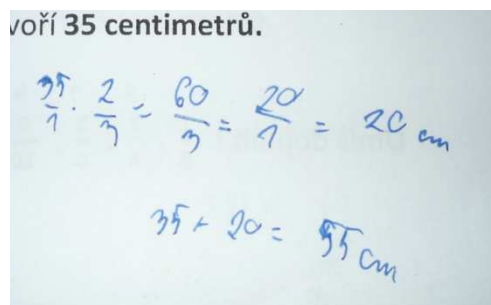 voří 35 centimetrů.
35/1 · 2/3 = 60/3 = 20/1 = 20 cm
35 + 20 = 55 cm